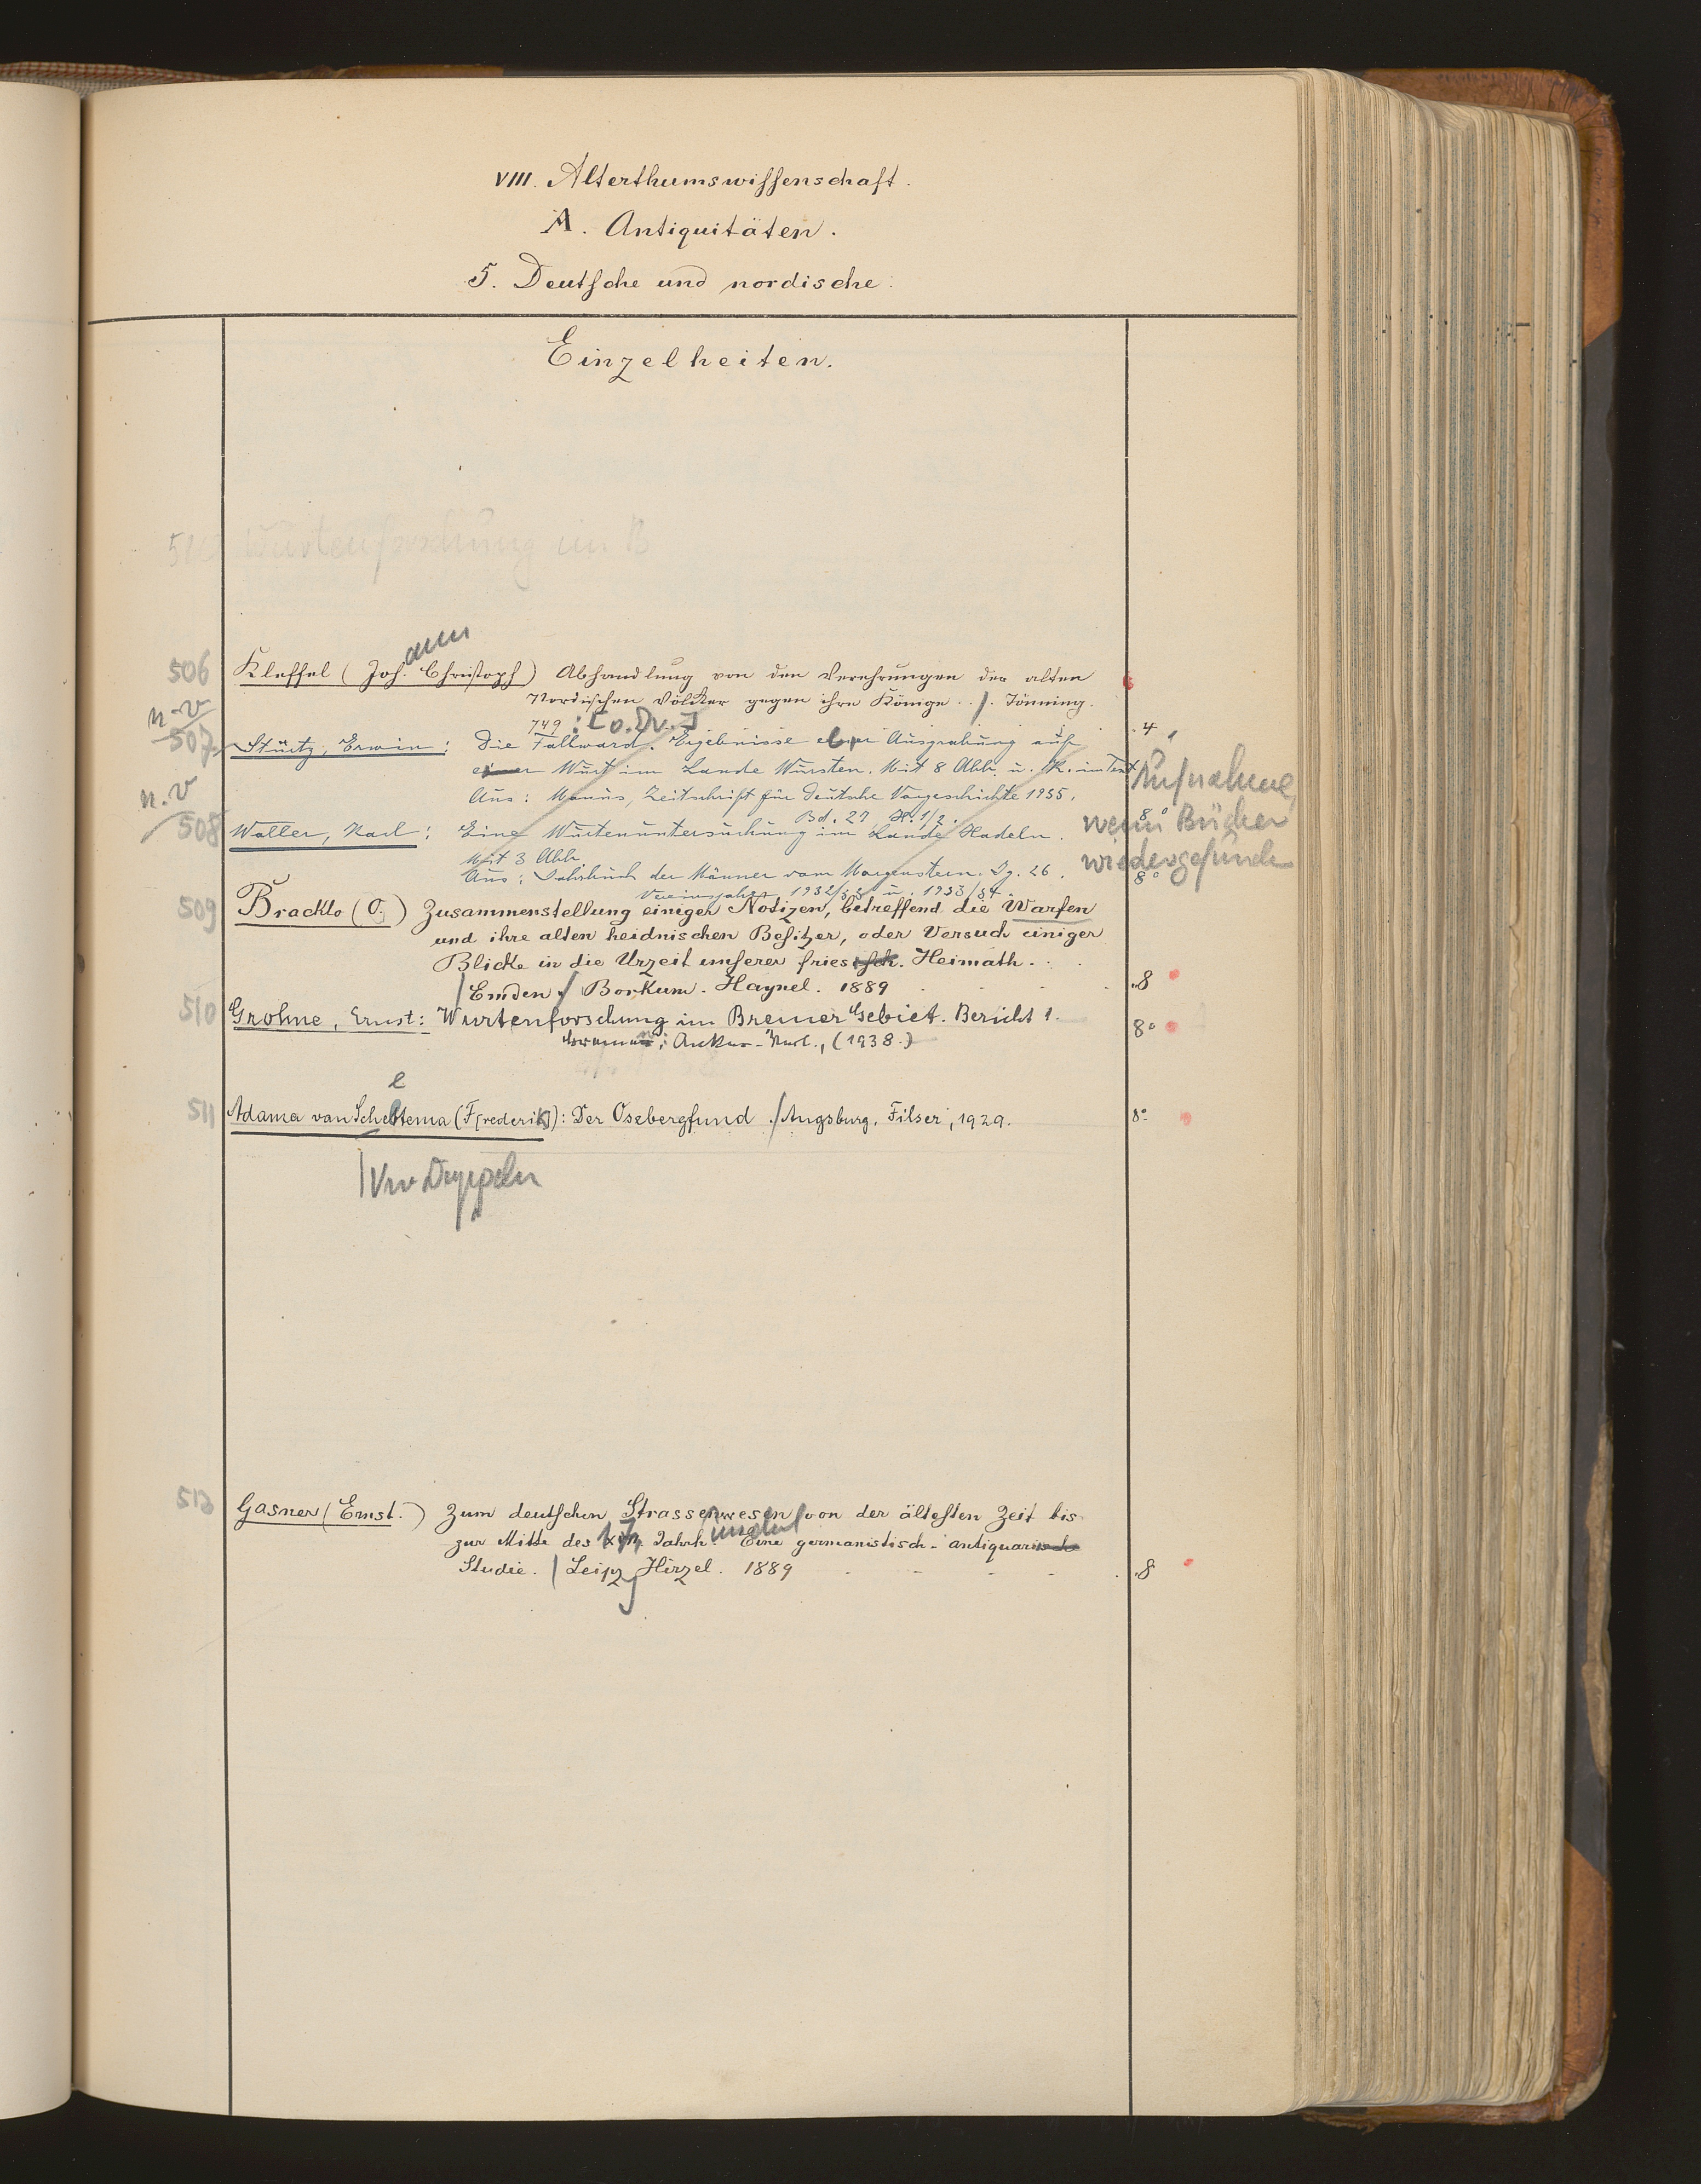 VIII. Alterthumswissenschaft.
A. Antiquitäten.
5. Deutsche und nordische.
Einzelheiten.
Wurtenforschung im B
506 Kleffel (Joh. Christoph) Abhandlung von den Verehrungen der alten
ann
Nordischen Völcker gegen ihre Könige . . /. Tönning.
749 : [o. Dr.] 4
n.v
507 Stüertz, Erwin: Die Fallward. Ergebnisse einer Ausgrabung auf
einer Wurt im Lande Wursten. Mit 8 Abb. u. K. im Text
Aus: Manus, Zeitschrift für deutsche Vorgeschichte 1935,
Bd. 27, H. 1/2. 8°
Aufnahme,
wenn Bücher
wiedergefunden
n.v
508 Waller, Karl: Eine Wurtenuntersuchung im Lande Hadeln.
Mit 3 Abb.
Aus: Jahrbuch der Männer vom Morgenstern. Jg. 26. 8°
Vereinsjahre 1932/33 u. 1933/34.
509 Bracklo (O.) Zusammenstellung einiger Notizen, betreffend die Warfen
und ihre alten heidnischen Besitzer, oder Versuch einiger
Blicke in die Urzeit unserer friesisch. Heimath.
/ Emden / Borkum. Haynel. 1889 8
510 Grohne, Ernst: Wurtenforschung im Bremer Gebiet. Bericht 1.
Bremen: Verl., (1938.) 8°
e
511 Adama van Scheltema (F[rederik]): Der Osebergfund ./ Augsburg, Filser, 1929. 8°
Gasner (Ernst.) Zum deutschen Strassenwesen von der ältesten Zeit bis
zur Mitte des 17. Jahrhundert Eine germanistisch-antiquarisch
Studie. / Leipzg Hirzel. 1889 8